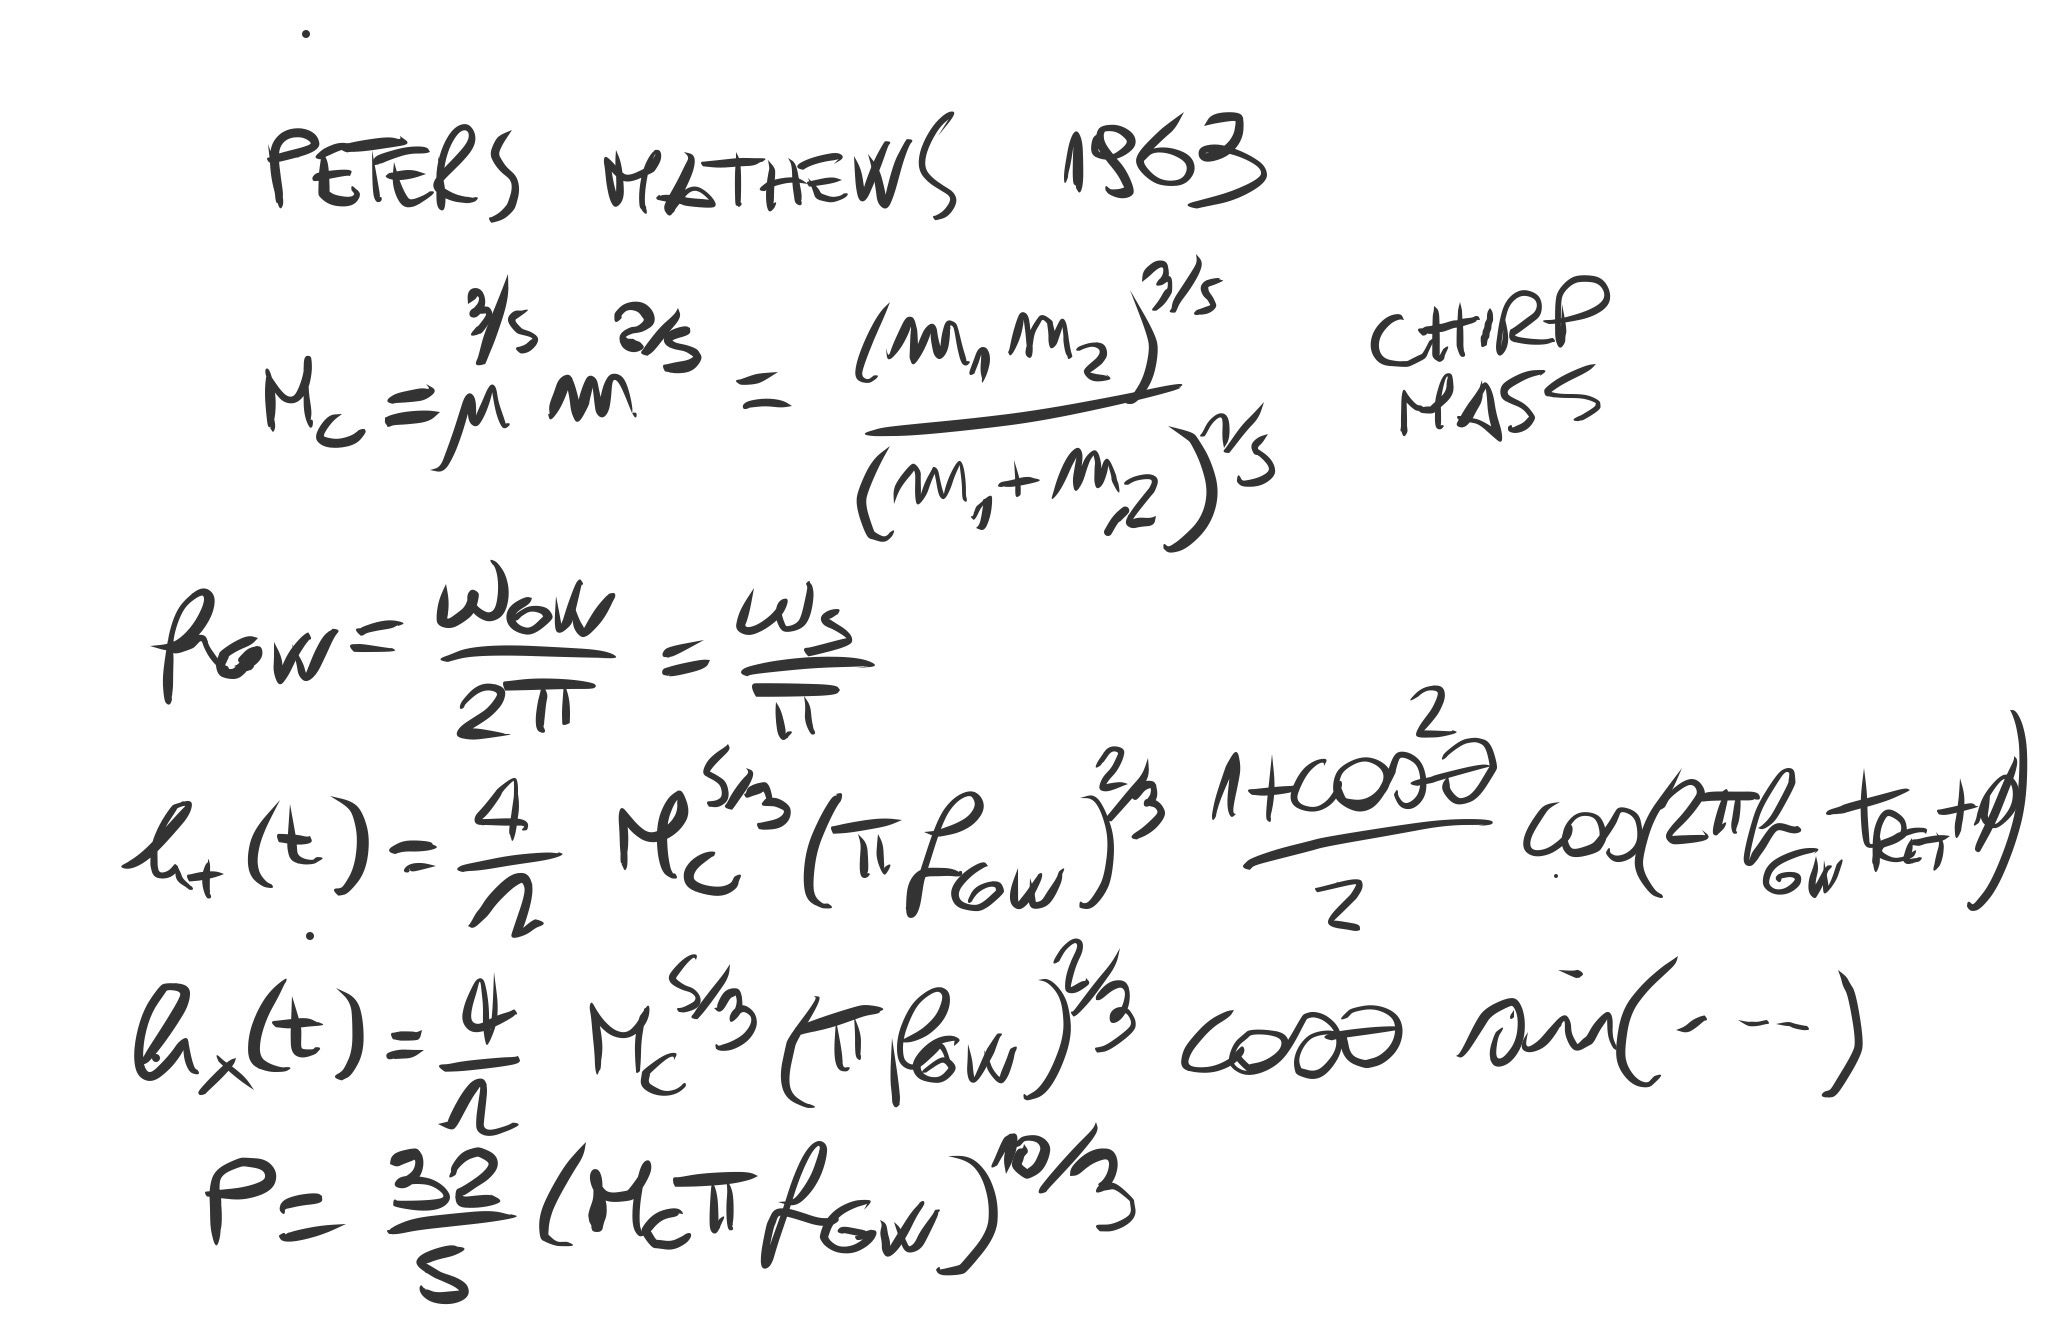 PETERS MATHEWS 1963
M_c = μ^{3/5} m^{2/5} = (m_1 m_2)^{3/5} / (m_1 + m_2)^{1/5} CHIRP MASS
f_GW = ω_GW / 2π = ω_s / π
h_+(t) = 4/r M_c^{5/3} (π f_GW)^{2/3} (1+cos²θ)/2 cos(2π f_GW t_RET + φ)
h_×(t) = 4/r M_c^{5/3} (π f_GW)^{2/3} cosθ sin(- - - -)
P = 32/5 (M_c π f_GW)^{10/3}